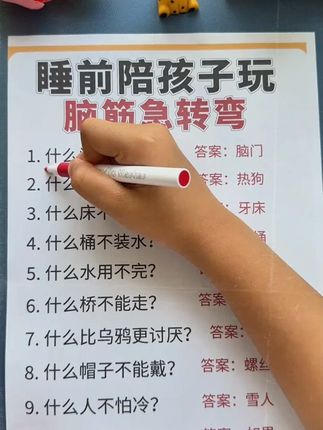 睡前陪孩子玩
脑筋急转弯
1. 什么 答案：脑门
2. 什么 答案：热狗
3. 什么床不 牙床
4. 什么桶不装水? 桶
5. 什么水用不完? 答案：
6. 什么桥不能走? 答案：
7. 什么比乌鸦更讨厌? 答案：
8. 什么帽子不能戴? 答案：螺丝
9. 什么人不怕冷? 答案：雪人